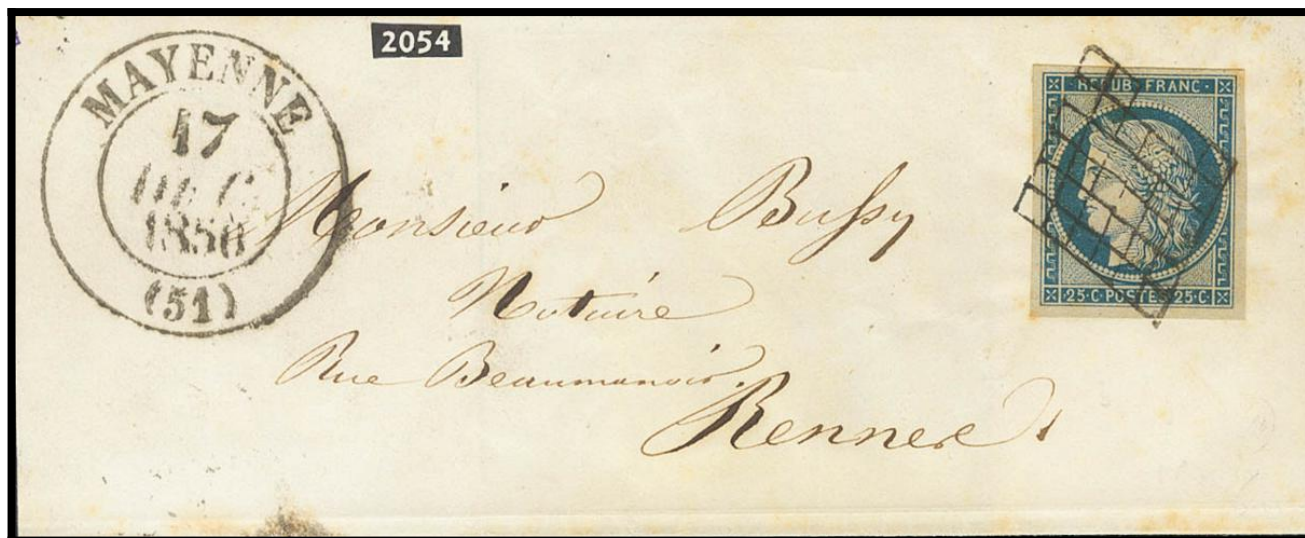 2054
MAYENNE
17
DEC.
1850
(51)
REPUB. FRANC.
25.C. POSTES 25.C.
Monsieur Bussy
Notaire
Rue Beaumanoir.
Rennes